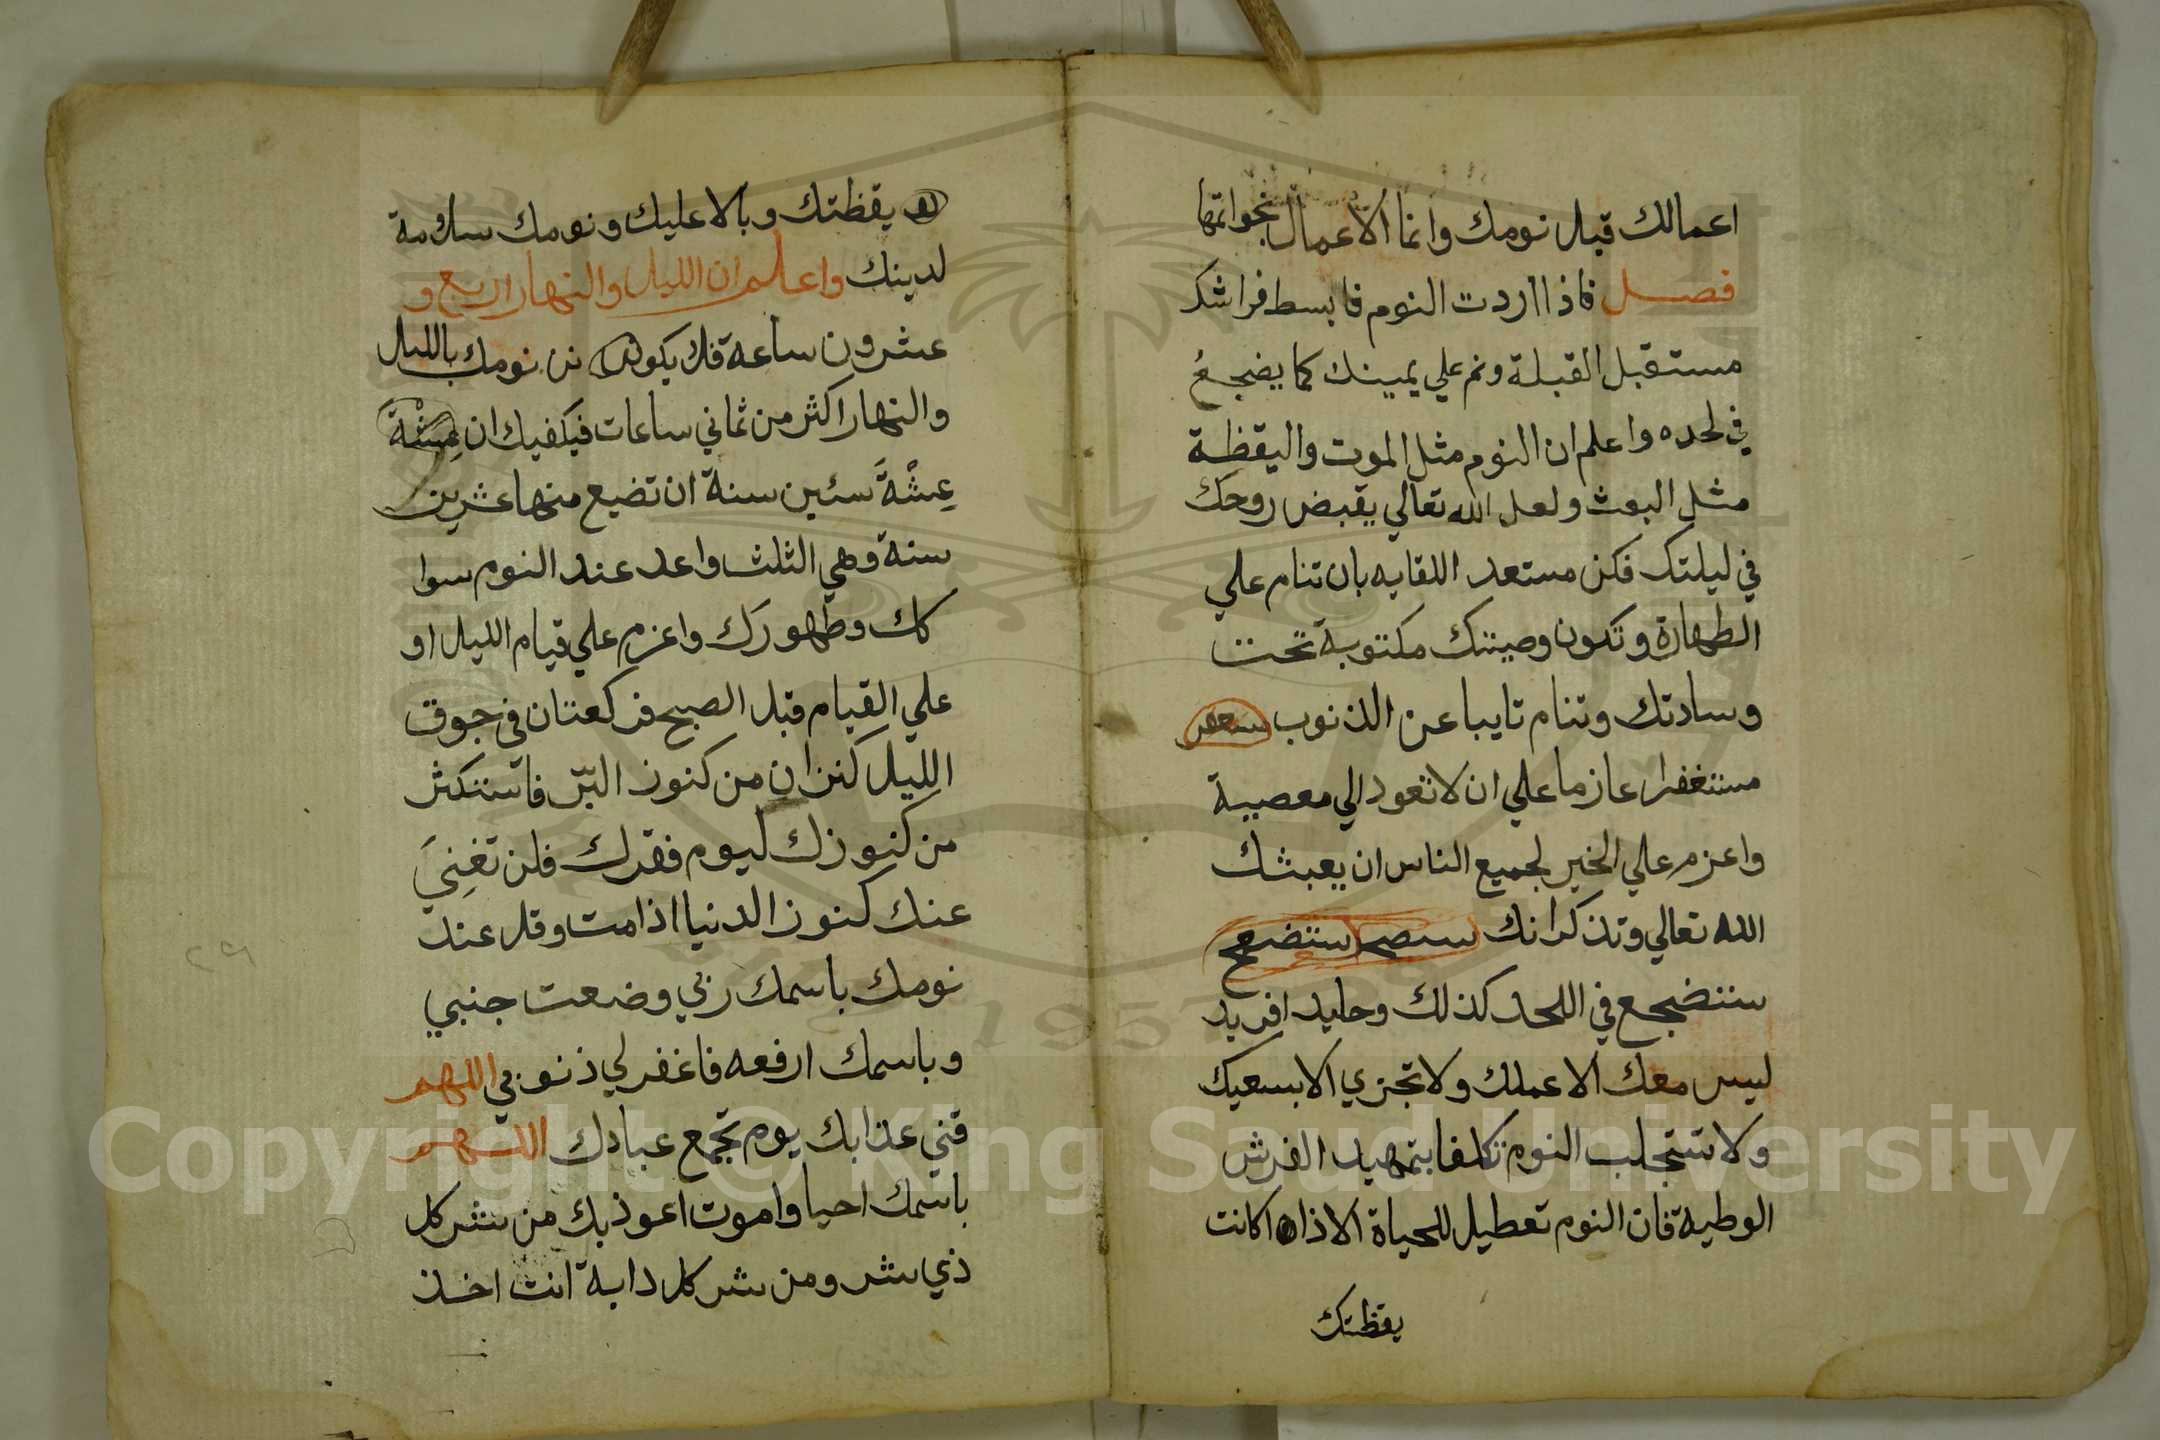 اعمالك قبل نومك وانما الاعمال بخواتمها
فصل فاذا اردت النوم فابسط فراشك
مستقبل القبلة ونم علي يمينك كما يضجع
في لحده واعلم ان النوم مثل الموت واليقظة
مثل البعث ولعل الله تعالي يقبض روحك
في ليلتك فكن مستعد اللقايه بان تنام علي
الطهارة وتكون وصيتك مكتوبة تحت
وسادتك وتنام تايبا عن الذنوب
مستغفرا عازما علي ان لا تعود الي معصيية
واعزم علي الخير لجميع الناس ان يعبثك
الله تعالي وتذكر انك
ستضجع في اللحد كذلك وحايد افريد
ليس معك الا عملك ولا تجزي الا بسعيك
ولا تستجلب النوم تكلفا بتمهيد الفرش
الوطيه فان النوم تعطيل للحياة الا اذا كانت
يقظتك
يقظتك وبالا عليك ونومك سلامة
لدينك واعلم ان الليل والنهار اربع و
عشرون ساعة فلا يكون نومك بالليل
والنهار اكثر من ثماني ساعات فيكفيك ان عشة
عشة ستين سنة ان تضيع منها عشرين
سنة وهي الثلث واعد عند النوم سوا
كك وطهورك واعزم علي قيام الليل او
علي القيام قبل الصبح فركعتان في جوف
الليل كنزان من كنوز البر فاستكثر
من كنوزك ليوم فقرك فلن تغني
عنك كنوز الدنيا اذا مت وقل عند
نومك باسمك ربي وضعت جنبي
وباسمك ارفعه فاغفر لي ذنوبي اللهم
قني عذابك يوم تجمع عبادك اللهم
باسمك احيا واموت اعوذ بك من شر كل
ذي شر ومن شر كل دابة انت اخذ
٢٩
1957
Copyright © King Saud University